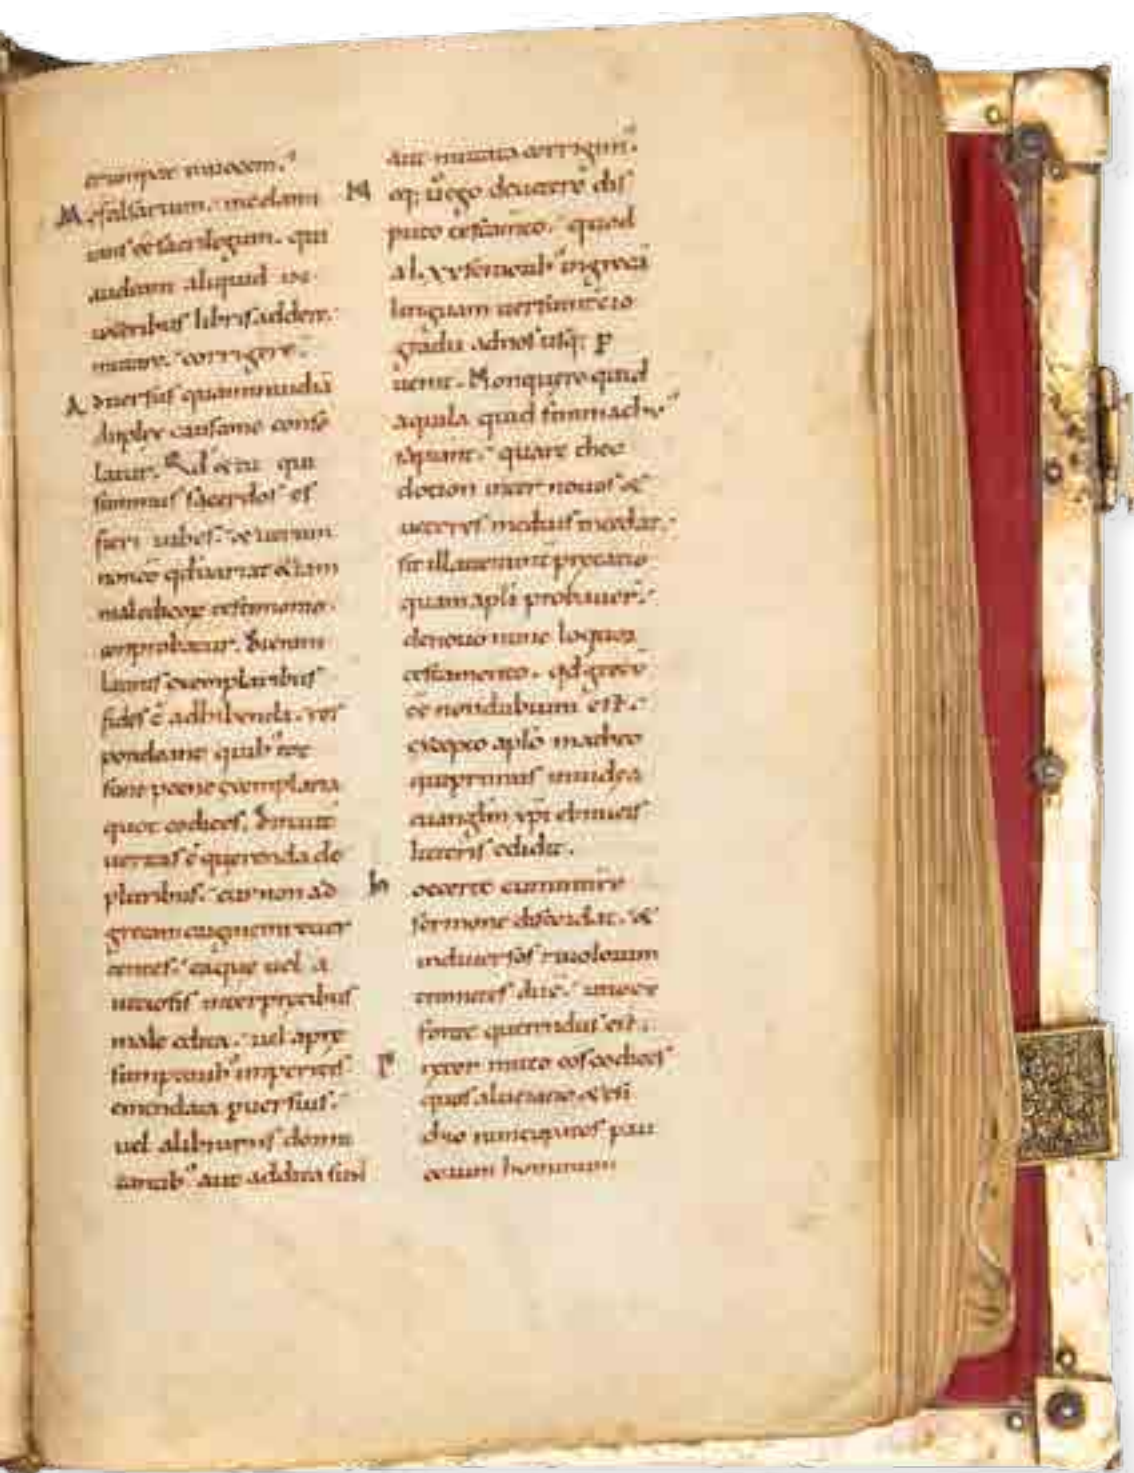 erumpat in vocem.
M e falsarium. me clami
tans ee sacrilegum. qui
audeam aliquid in
ueteribus libris addere.
mutare. corrigere.
A duersus quam inuidiā
duplex causa me conso
latur. Qd & tu qui
summus sacerdos es
fieri iubes. & uerum
non eē qđ uariat etiam
maledicorum testimonio
conprobatur. Si enim
latinis exemplaribus
fides ē adhibenda. res
pondeant quib; tot
sunt poene exemplaria
quot codices. Sin aut
ueritas ē querenda de
pluribus. cur non ad
grecam originem reuer
tentes. ea que uel a
uitiosis interpretibus
male edita. uel a pre
sumptorib; imperitis
emendata peruersius.
uel a librariis dormi
tantib; aut addita sunt
aut mutata corrigim;
N eq; u̅ ego de uetere dis
puto testam̅to. quod
a l.xx senioribus in grecā
linguam uersum tercio
gradu ad nos usq; p
uenit. Non quero quid
aquila quid simmachus
sapiant. quare theo
dotion inter nouos &
ueteres medius incedat.
sit illa uera int̅pretatio
quam apl̅i probauer̅.
de nouo nunc loquor
testamento. qđ grecū
eē non dubium est.
excepto aplo̅ matheo
qui primus in iudea
euanglm̅ xp̅i ebraicis
litteris edidit.
h oc certe cum in n̅ro
sermone discordat. &
in diuersos riuolorum
tramites ducit. uno de
fonte querendus est.
P retermitto eos codices
quos a luciano & esi
chio nuncupatos pau
corum hominum